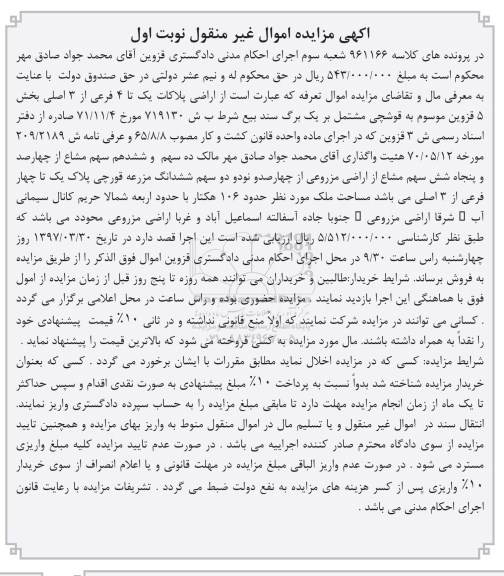 اکهی مزایده اموال غیر منقول نوبت اول
در پرونده های کلاسه ۹۶۱۱۶۶ شعبه سوم اجرای احکام مدنی دادگستری قزوین آقای محمد جواد صادق مهر
محکوم است به مبلغ ۵۴۳/۰۰۰/۰۰۰ ریال در حق محکوم له و نیم عشر دولتی در حق صندوق دولت با عنایت
به معرفی مال و تقاضای مزایده اموال تعرفه که عبارت است از اراضی پلاکات یک تا ۴ فرعی از ۳ اصلی بخش
۵ قزوین موسوم به قوشچی مشتمل بر یک برگ سند بیع شرط ب ش ۷۱۹۱۳۰ مورخ ۷۱/۱۱/۴ صادره از دفتر
اسناد رسمی ش ۳ قزوین که در اجرای ماده واحده قانون کشت و کار مصوب ۶۵/۸/۸ و عرفی نامه ش ۲۰۹/۲۱۸۹
مورخه ۷۰/۰۵/۱۲ هئیت واگذاری آقای محمد جواد صادق مهر مالک ده سهم و ششدهم سهم مشاع از چهارصد
و پنجاه شش سهم مشاع از اراضی مزروعی از چهارصدو نودو دو سهم ششدانگ مزرعه قورچی پلاک یک تا چهار
فرعی از ۳ اصلی می باشد مساحت ملک مورد نظر حدود ۱۰۶ هکتار با حدود اربعه شمالا حریم کانال سیمانی
آب شرقا اراضی مزروعی جنوبا جاده آسفالته اسماعیل آباد و غربا اراضی مزروعی محدود می باشد که
طبق نظر کارشناسی ۵/۵۱۲/۰۰۰/۰۰۰ ریال ارزیابی شده است این اجرا قصد دارد در تاریخ ۱۳۹۷/۰۳/۳۰ روز
چهارشنبه راس ساعت ۹/۳۰ در محل اجرای احکام مدنی دادگستری قزوین اموال فوق الذکر را از طریق مزایده
به فروش برساند. شرایط خریدار:طالبین و خریداران می توانند همه روزه تا پنج روز قبل از زمان مزایده از امول
فوق با هماهنگی این اجرا بازدید نمایند . مزایده حضوری بوده و راس ساعت در محل اعلامی برگزار می گردد
. کسانی می توانند در مزایده شرکت نمایند که اولاً منع قانونی نداشته و در ثانی ۱۰٪ قیمت پیشنهادی خود
را نقداً به همراه داشته باشند. مال مورد مزایده به کسی فروخته می شود که بالاترین قیمت را پیشنهاد نماید .
شرایط مزایده: کسی که در مزایده اخلال نماید مطابق مقررات با ایشان برخورد می گردد . کسی که بعنوان
خریدار مزایده شناخته شد بدواً نسبت به پرداخت ۱۰٪ مبلغ پیشنهادی به صورت نقدی اقدام و سپس حداکثر
تا یک ماه از زمان انجام مزایده مهلت دارد تا مابقی مبلغ مزایده را به حساب سپرده دادگستری واریز نمایند.
انتقال سند در اموال غیر منقول و یا تسلیم مال در اموال منقول منوط به واریز بهای مزایده و همچنین تایید
مزایده از سوی دادگاه محترم صادر کننده اجراییه می باشد . در صورت عدم تایید مزایده کلیه مبلغ واریزی
مسترد می شود . در صورت عدم واریز الباقی مبلغ مزایده در مهلت قانونی و یا اعلام انصراف از سوی خریدار
۱۰٪ واریزی پس از کسر هزینه های مزایده به نفع دولت ضبط می گردد . تشریفات مزایده با رعایت قانون
اجرای احکام مدنی می باشد .